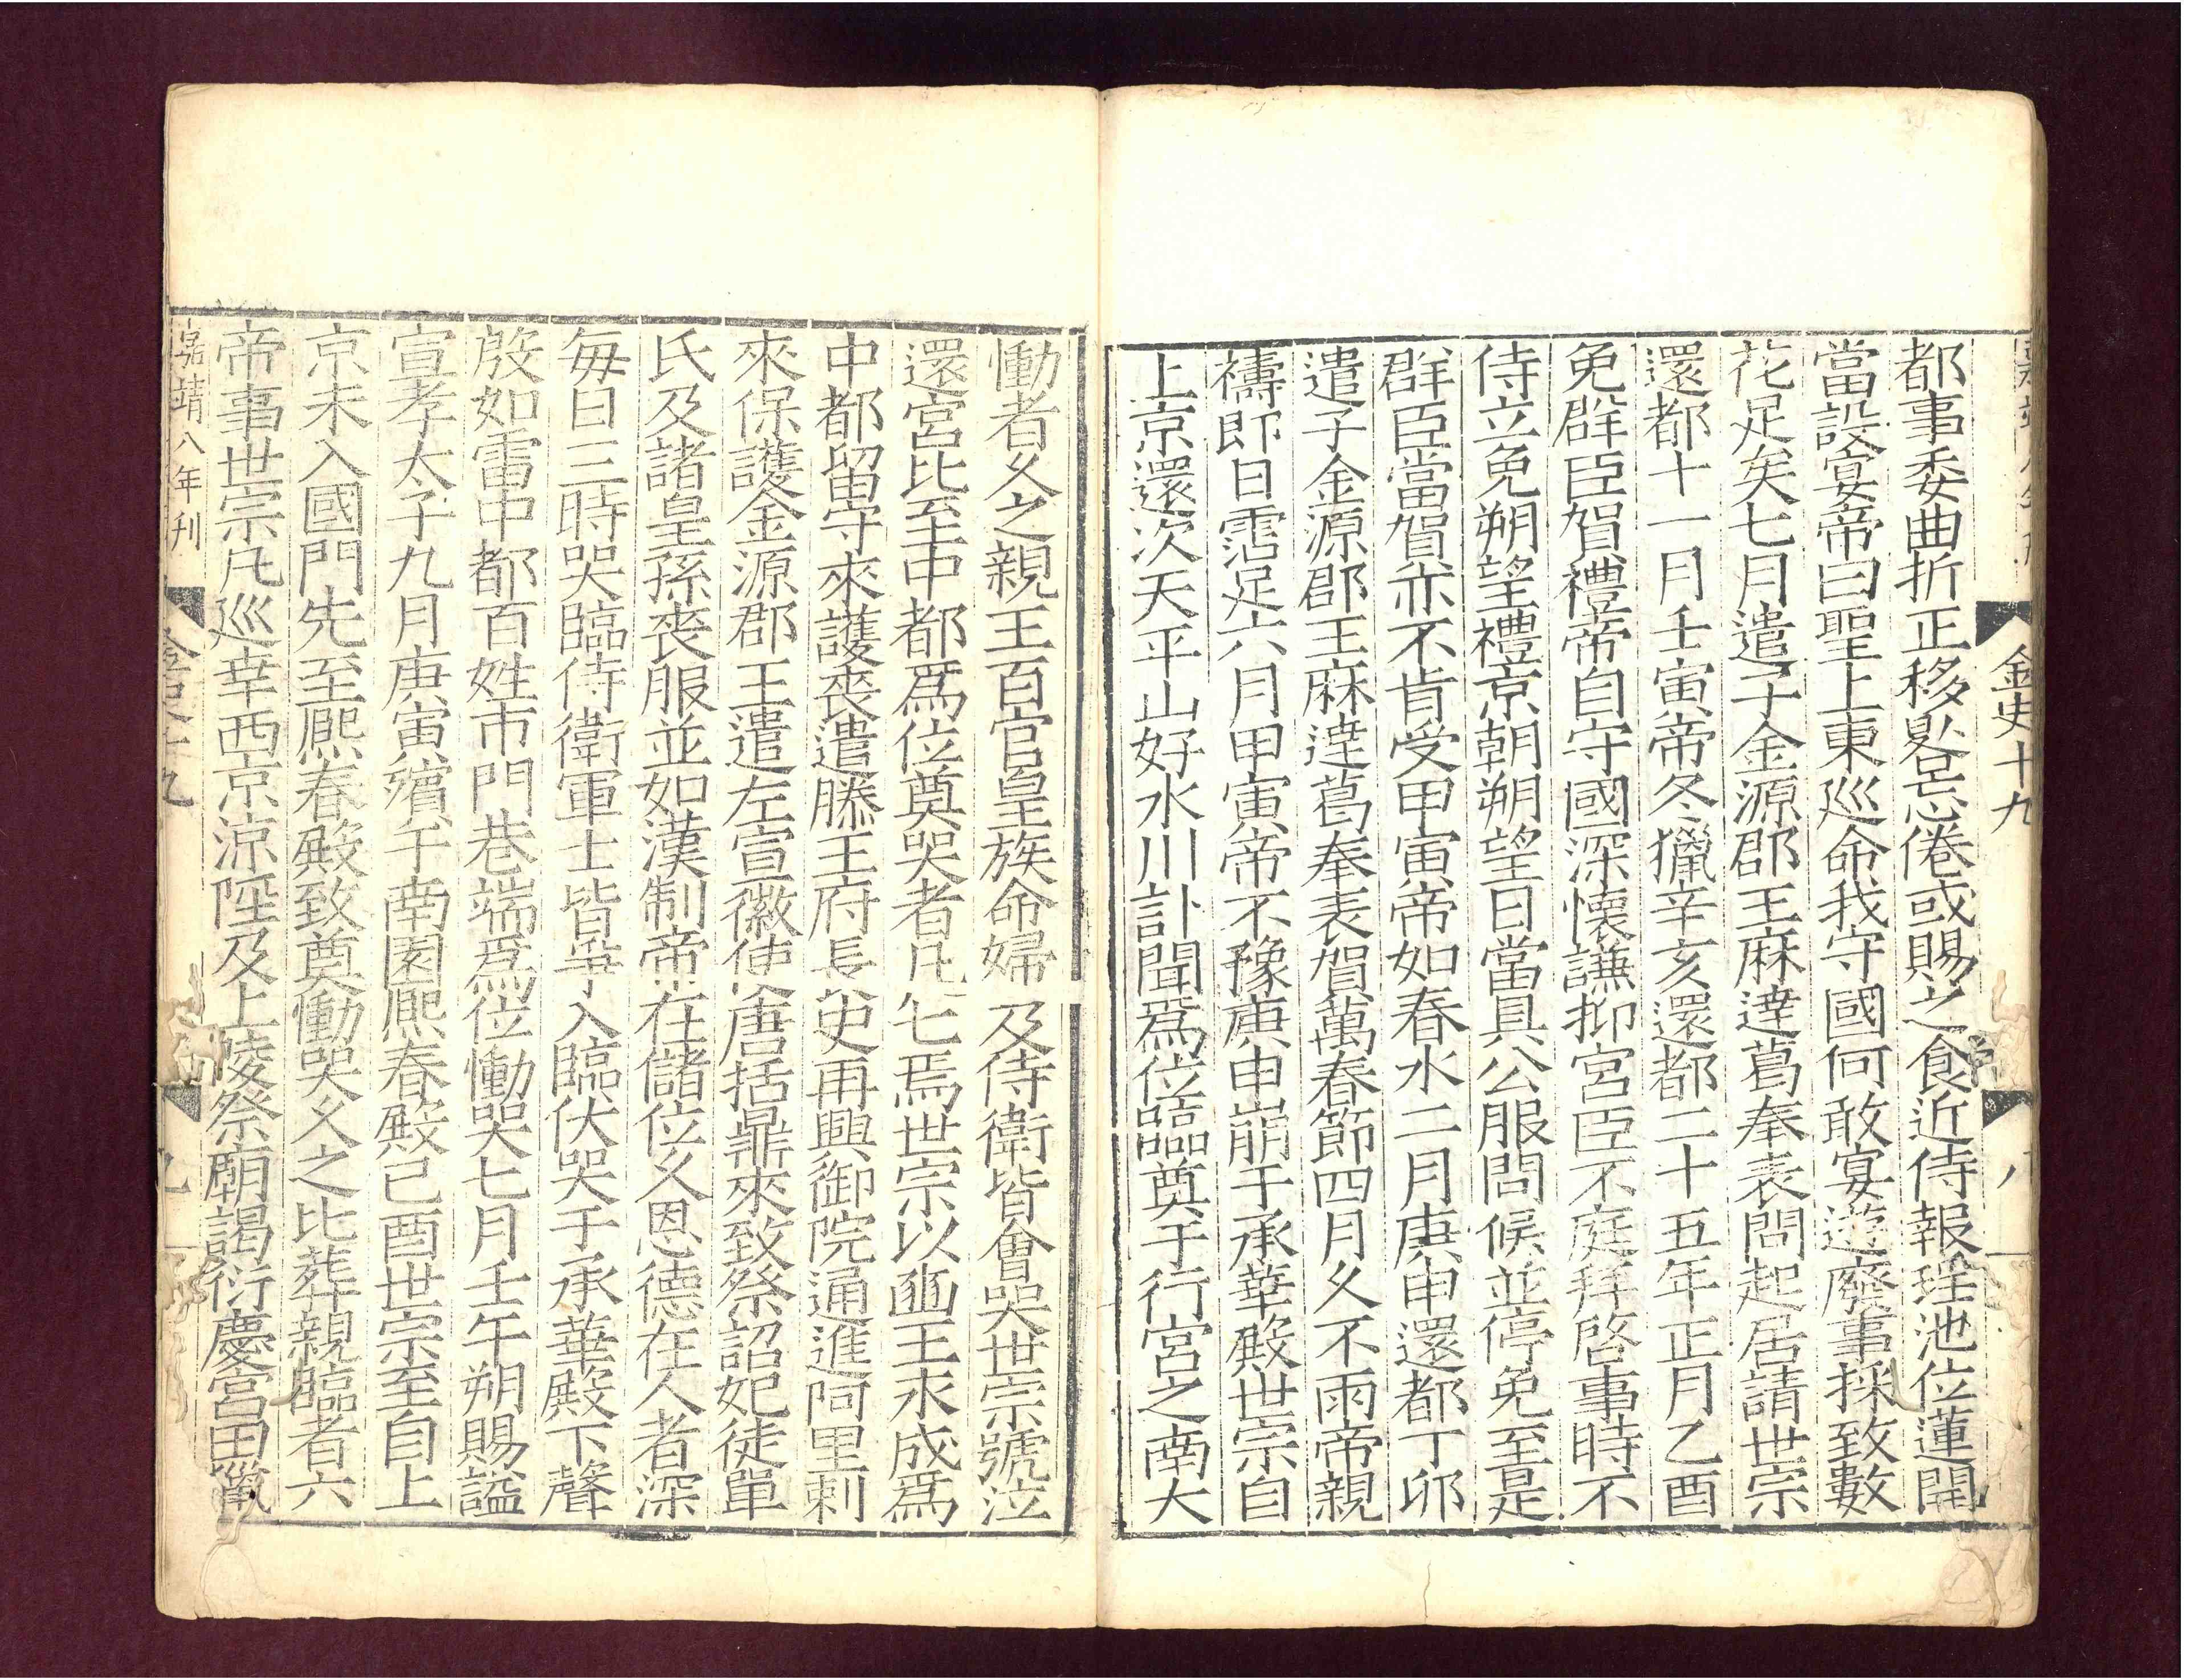 金史十九
都事委曲折正移晷忘倦或賜之食近侍報瑤池位蓮開
當設宴帝曰聖上東巡命我守國何敢宴遊廢事採致數
花足矣七月遣子金源郡王麻達葛奉表問起居請世宗
還都十一月壬寅帝冬獵辛亥還都二十五年正月乙酉
免群臣賀禮帝自守國深懷謙抑宮臣不庭拜啓事時不
侍立免朔望禮京朝朔望日當具公服問候並停免至是
群臣當賀亦不肯受甲寅帝如春水二月庚申還都丁卯
遣子金源郡王麻達葛奉表賀萬春節四月久不雨帝親
禱即日霑足六月甲寅帝不豫庚申崩于承華殿世宗自
上京還次天平山好水川訃聞爲位臨奠于行宮之南大
慟者久之親王百官皇族命婦及侍衛皆會哭世宗號泣
還宮比至中都爲位奠哭者凡七焉世宗以豳王永成爲
中都留守來護喪遣滕王府長史再興御院通進阿里剌
來保護金源郡王遣左宣徽使唐括鼎來致祭詔妃徒單
氏及諸皇孫喪服並如漢制帝在儲位久恩德在人者深
每日三時哭臨侍衛軍士皆爭入臨伏哭于承華殿下聲
殷如雷中都百姓市門巷端爲位慟哭七月壬午朔賜謚
宣孝太子九月庚寅殯于南園熙春殿己酉世宗至自上
京未入國門先至熙春殿致奠慟哭久之比葬親臨者六
帝事世宗凡巡幸西京涼陘及上陵祭廟謁衍慶宮田獵
嘉靖八年刊 金史十九 九